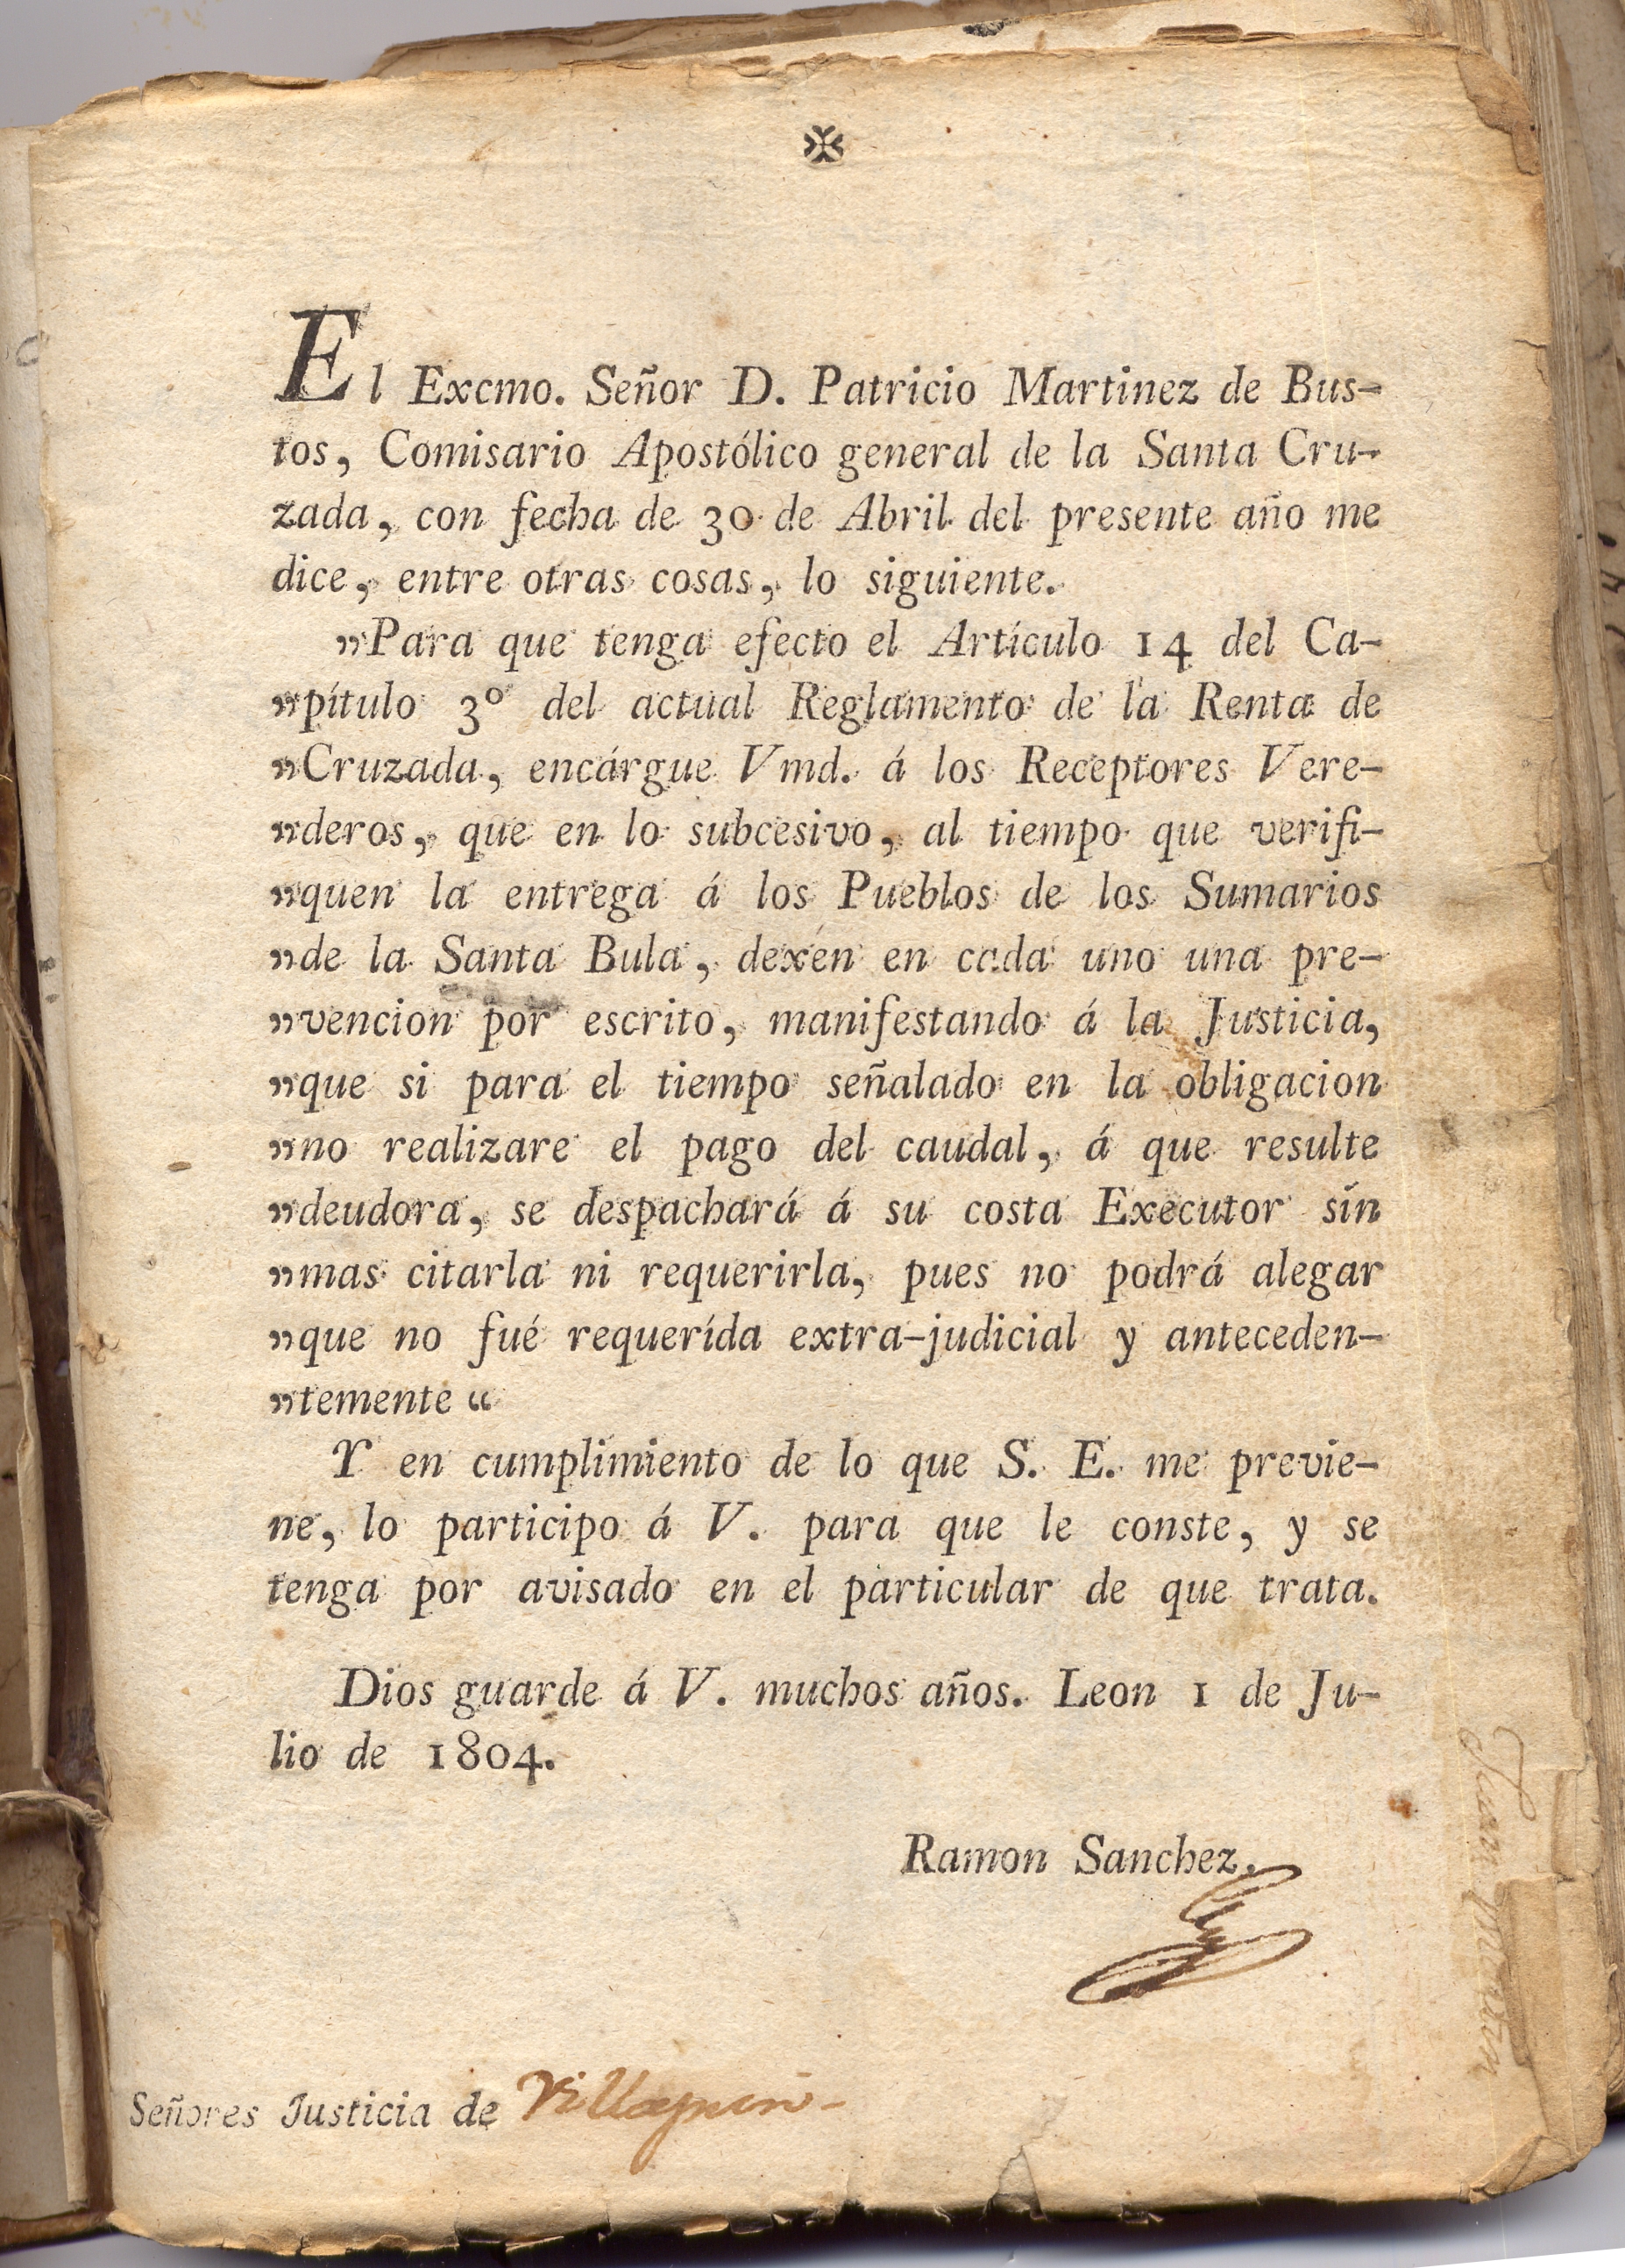 El Excmo. Señor D. Patricio Martinez de Bus-
tos, Comisario Apostólico general de la Santa Cru-
zada, con fecha de 30 de Abril del presente año me
dice, entre otras cosas, lo siguiente.
„Para que tenga efecto el Artículo 14 del Ca-
„pítulo 3º del actual Reglamento de la Renta de
„Cruzada, encárgue Vmd. á los Receptores Vere-
„deros, que en lo subcesivo, al tiempo que verifi-
„quen la entrega á los Pueblos de los Sumarios
„de la Santa Bula, dexen en cada uno una pre-
„vencion por escrito, manifestando á la Justicia,
„que si para el tiempo señalado en la obligacion
„no realizare el pago del caudal, á que resulte
„deudora, se despachará á su costa Executor sin
„mas citarla ni requerirla, pues no podrá alegar
„que no fué requerída extra-judicial y anteceden-
„temente “
Y en cumplimiento de lo que S. E. me previe-
ne, lo participo á V. para que le conste, y se
tenga por avisado en el particular de que trata.
Dios guarde á V. muchos años. Leon 1 de Ju-
lio de 1804.
Ramon Sanchez.
Señores Justicia de
Juan Martin